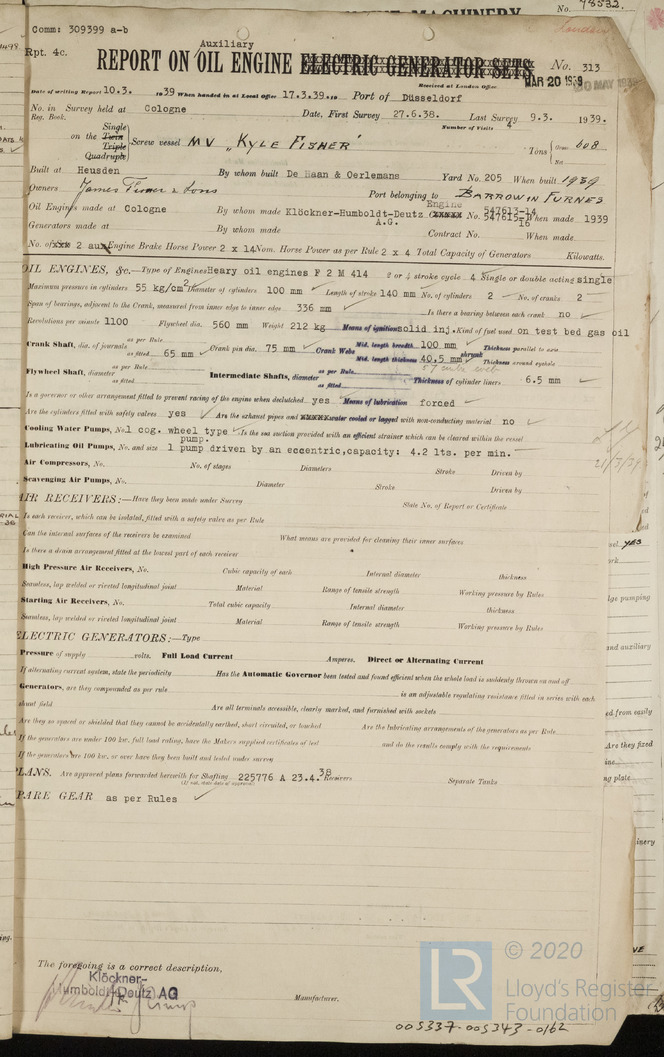 No. 78532.
Comm: 309399 a-b
Rpt. 4c.
Auxiliary
REPORT ON OIL ENGINE ELECTRIC GENERATOR SETS
No. 313
Received at London Office
MAR 20 1939
Date of writing Report 10.3. 1939 When handed in at Local Office 17.3.39. Port of Düsseldorf
No. in Survey held at Cologne Date, First Survey 27.6.38. Last Survey 9.3. 1939.
Reg. Book. Number of Visits 4
Single
on the Twin Triple Quadruple Screw vessel MV "KYLE FISHER" Tons Gross 608 Net
Built at Heusden By whom built De Haan & Oerlemans Yard No. 205 When built 1939
Owners James Fisher & Sons Port belonging to BARROW IN FURNES
Oil Engines made at Cologne By whom made Klöckner-Humboldt-Deutz A.G. Engine No. 547613-14 547615-16 When made 1939
Generators made at By whom made Contract No. When made
No. of Sets 2 aux Engine Brake Horse Power 2 x 14 Nom. Horse Power as per Rule 2 x 4 Total Capacity of Generators Kilowatts.
OIL ENGINES, &c.—Type of Engines Heary oil engines F 2 M 414 2 or 4 stroke cycle 4 Single or double acting single
Maximum pressure in cylinders 55 kg/cm2 Diameter of cylinders 100 mm Length of stroke 140 mm No. of cylinders 2 No. of cranks 2
Span of bearings, adjacent to the Crank, measured from inner edge to inner edge 336 mm Is there a bearing between each crank no
Revolutions per minute 1100 Flywheel dia. 560 mm Weight 212 kg Means of ignition solid inj. Kind of fuel used on test bed gas oil
Crank Shaft, dia. of journals as per Rule as fitted 65 mm Crank pin dia. 75 mm Crank Webs Mid. length breadth 100 mm Mid. length thickness 40,5 mm shrunk Thickness parallel to axis Thickness around eyehole
Flywheel Shaft, diameter as per Rule as fitted Intermediate Shafts, diameter as per Rule as fitted Thickness of cylinder liners 6.5 mm
Is a governor or other arrangement fitted to prevent racing of the engine when declutched yes Means of lubrication forced
Are the cylinders fitted with safety valves yes Are the exhaust pipes and water cooled or lagged with non-conducting material no
Cooling Water Pumps, No. 1 cog. wheel type pump. Is the sea suction provided with an efficient strainer which can be cleared within the vessel
Lubricating Oil Pumps, No. and size 1 pump driven by an eccentric, capacity: 4.2 lts. per min.
Air Compressors, No. No. of stages Diameters Stroke Driven by
Scavenging Air Pumps, No. Diameter Stroke Driven by
AIR RECEIVERS:—Have they been made under Survey State No. of Report or Certificate
Is each receiver, which can be isolated, fitted with a safety valve as per Rule
Can the internal surfaces of the receivers be examined What means are provided for cleaning their inner surfaces
Is there a drain arrangement fitted at the lowest part of each receiver
High Pressure Air Receivers, No. Cubic capacity of each Internal diameter thickness
Seamless, lap welded or riveted longitudinal joint Material Range of tensile strength Working pressure by Rules
Starting Air Receivers, No. Total cubic capacity Internal diameter thickness
Seamless, lap welded or riveted longitudinal joint Material Range of tensile strength Working pressure by Rules
ELECTRIC GENERATORS:—Type
Pressure of supply volts. Full Load Current Amperes. Direct or Alternating Current
If alternating current system, state the periodicity Has the Automatic Governor been tested and found efficient when the whole load is suddenly thrown on and off
Generators, are they compounded as per rule is an adjustable regulating resistance fitted in series with each
shunt field Are all terminals accessible, clearly marked, and furnished with sockets
Are they so spaced or shielded that they cannot be accidentally earthed, short circuited, or touched Are the lubricating arrangements of the generators as per Rule
If the generators are under 100 kw. full load rating, have the Makers supplied certificates of test and do the results comply with the requirements
If the generators are 100 kw. or over have they been built and tested under survey
PLANS. Are approved plans forwarded herewith for Shafting 225776 A 23.4.38 Receivers Separate Tanks
SPARE GEAR as per Rules
The foregoing is a correct description,
Klöckner-
Humboldt-Deutz AG
Manufacturer.
LR © 2020
Lloyd's Register
Foundation
005337-005343-0162